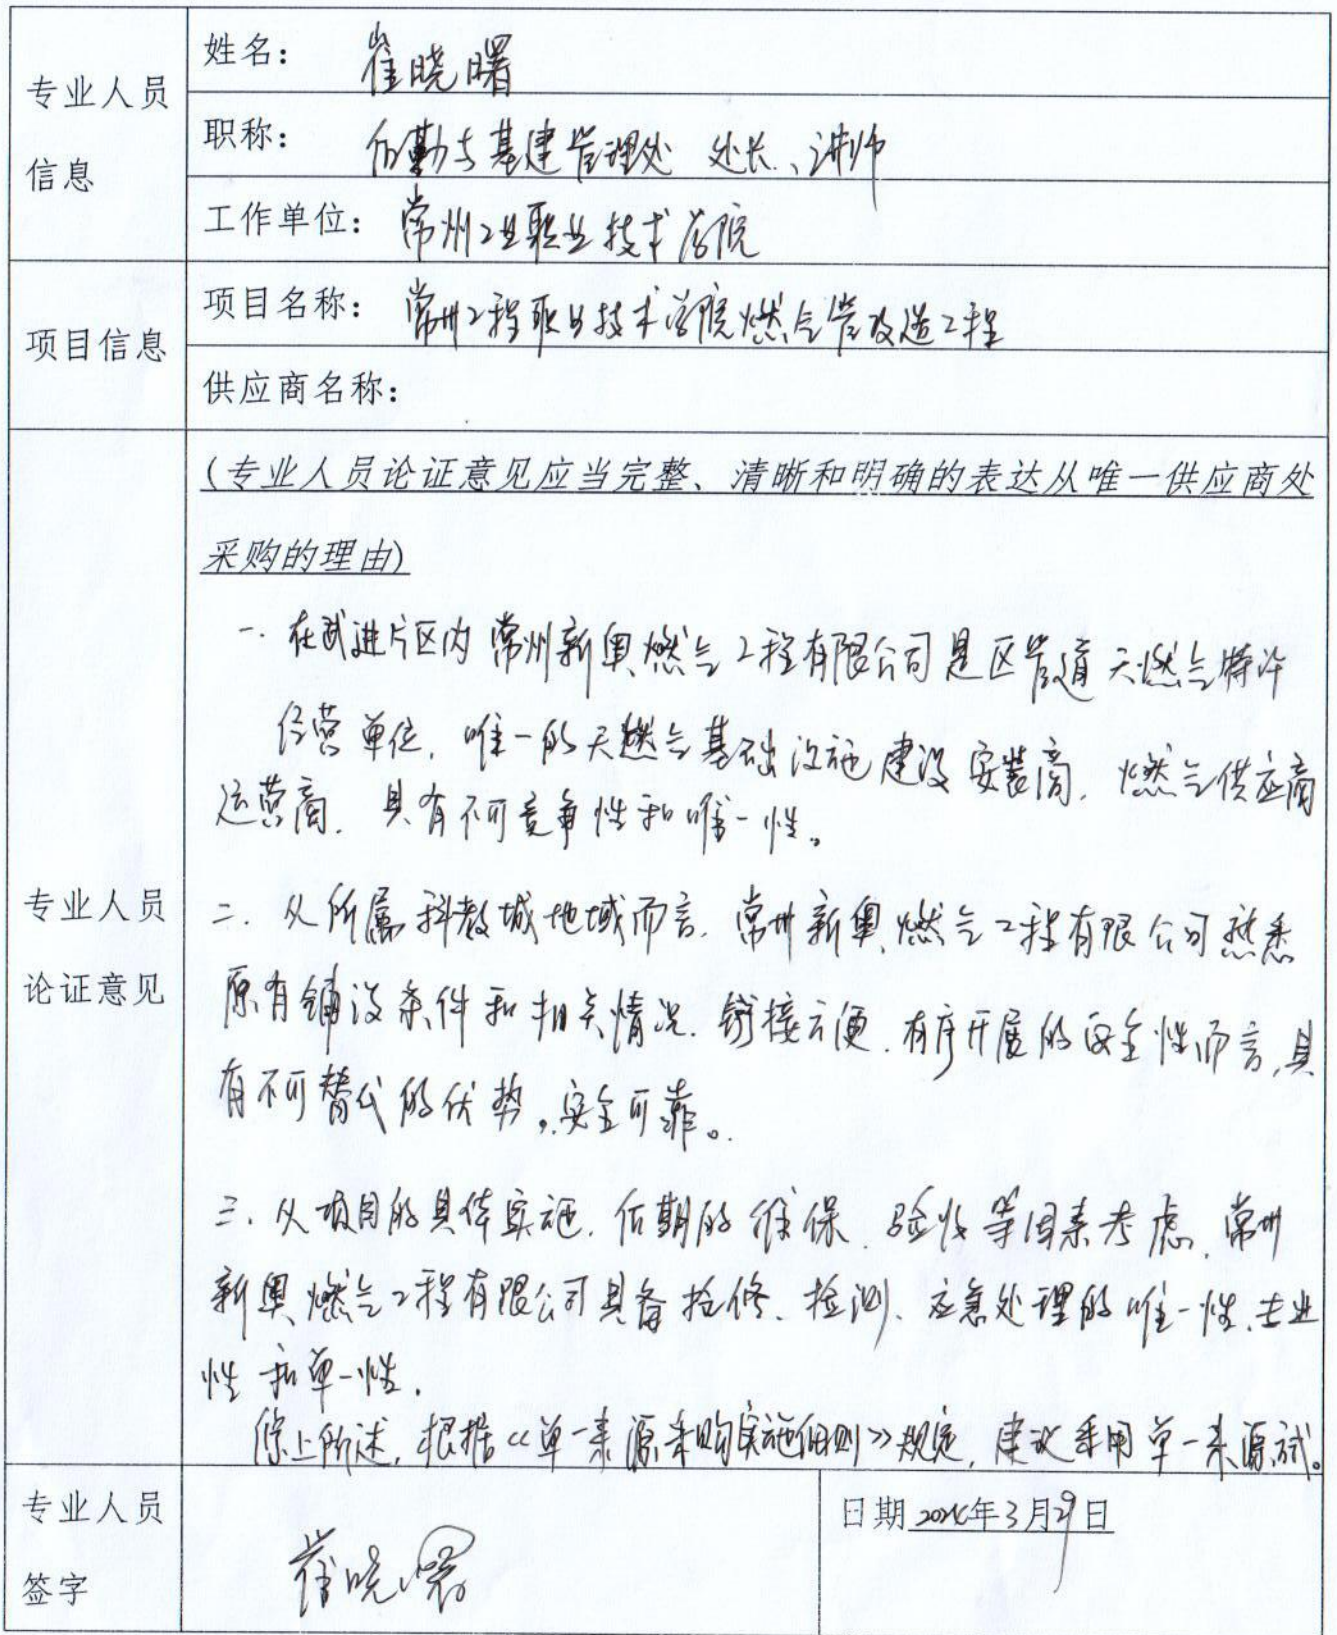 专业人员
信息
姓名： 崔晓曙
职称： 后勤与基建管理处 处长、讲师
工作单位： 常州工业职业技术学院
项目信息
项目名称： 常州工程职业技术学院燃气管改造工程
供应商名称：
专业人员
论证意见
(专业人员论证意见应当完整、清晰和明确的表达从唯一供应商处
采购的理由)
一. 在武进片区内 常州新奥燃气工程有限公司是区管道天燃气特许
经营单位, 唯一的天燃气基础设施建设安装商, 燃气供应商
运营商. 具有不可竞争性和唯一性。
二. 从所属科教城地域而言, 常州新奥燃气工程有限公司熟悉
原有铺设条件和相关情况. 链接方便. 有序开展的安全性而言,具
有不可替代的优势。安全可靠。
三. 从项目的具体实施. 后期的维保、验收等因素考虑, 常州
新奥燃气工程有限公司具备抢修、检测、应急处理的唯一性、专业
性和单一性.
综上所述, 根据《单一来源采购实施细则》规定, 建议采用单一来源式。
专业人员
签字
崔晓曙
日期 年3月29日